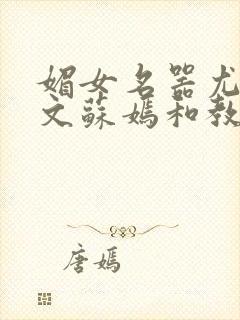 媚女名器尤
文蘇媽和教
唐媽